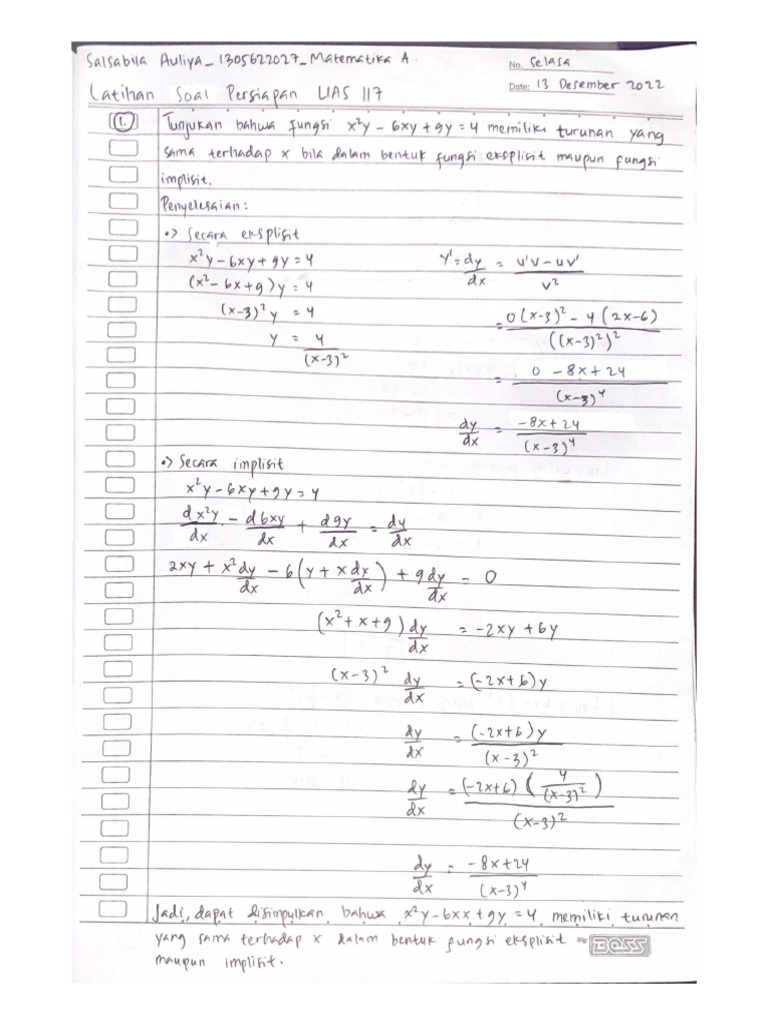 Salsabila Auliya_1305622027_Matematika A.
No. Selasa
Date: 13 Desember 2022
Latihan Soal Persiapan UAS 117
1. Tunjukan bahwa fungsi x²y - 6xy + 9y = 4 memiliki turunan yang
sama terhadap x bila dalam bentuk fungsi eksplisit maupun fungsi
implisit.
Penyelesaian:
•> Secara eksplisit
x²y - 6xy + 9y = 4
(x² - 6x + 9)y = 4
(x-3)² y = 4
y = 4/(x-3)²
y' = dy/dx = u'v - uv'/v²
= 0(x-3)² - 4(2x-6)/((x-3)²)²
= 0 - 8x + 24/(x-3)⁴
dy/dx = -8x + 24/(x-3)⁴
•> Secara implisit
x²y - 6xy + 9y = 4
dx²y/dx - d6xy/dx + d9y/dx = dy/dx
2xy + x²dy/dx - 6(y + x dx/dx) + 9dy/dx = 0
(x² + x + 9) dy/dx = -2xy + 6y
(x-3)² dy/dx = (-2x+6)y
dy/dx = (-2x+6)y/(x-3)²
dy/dx = (-2x+6)(4/(x-3)²)/(x-3)²
dy/dx = -8x + 24/(x-3)⁴
Jadi, dapat disimpulkan bahwa x²y - 6xx + 9y = 4 memiliki turunan
yang sama terhadap x dalam bentuk fungsi eksplisit
maupun implisit.
BOSS